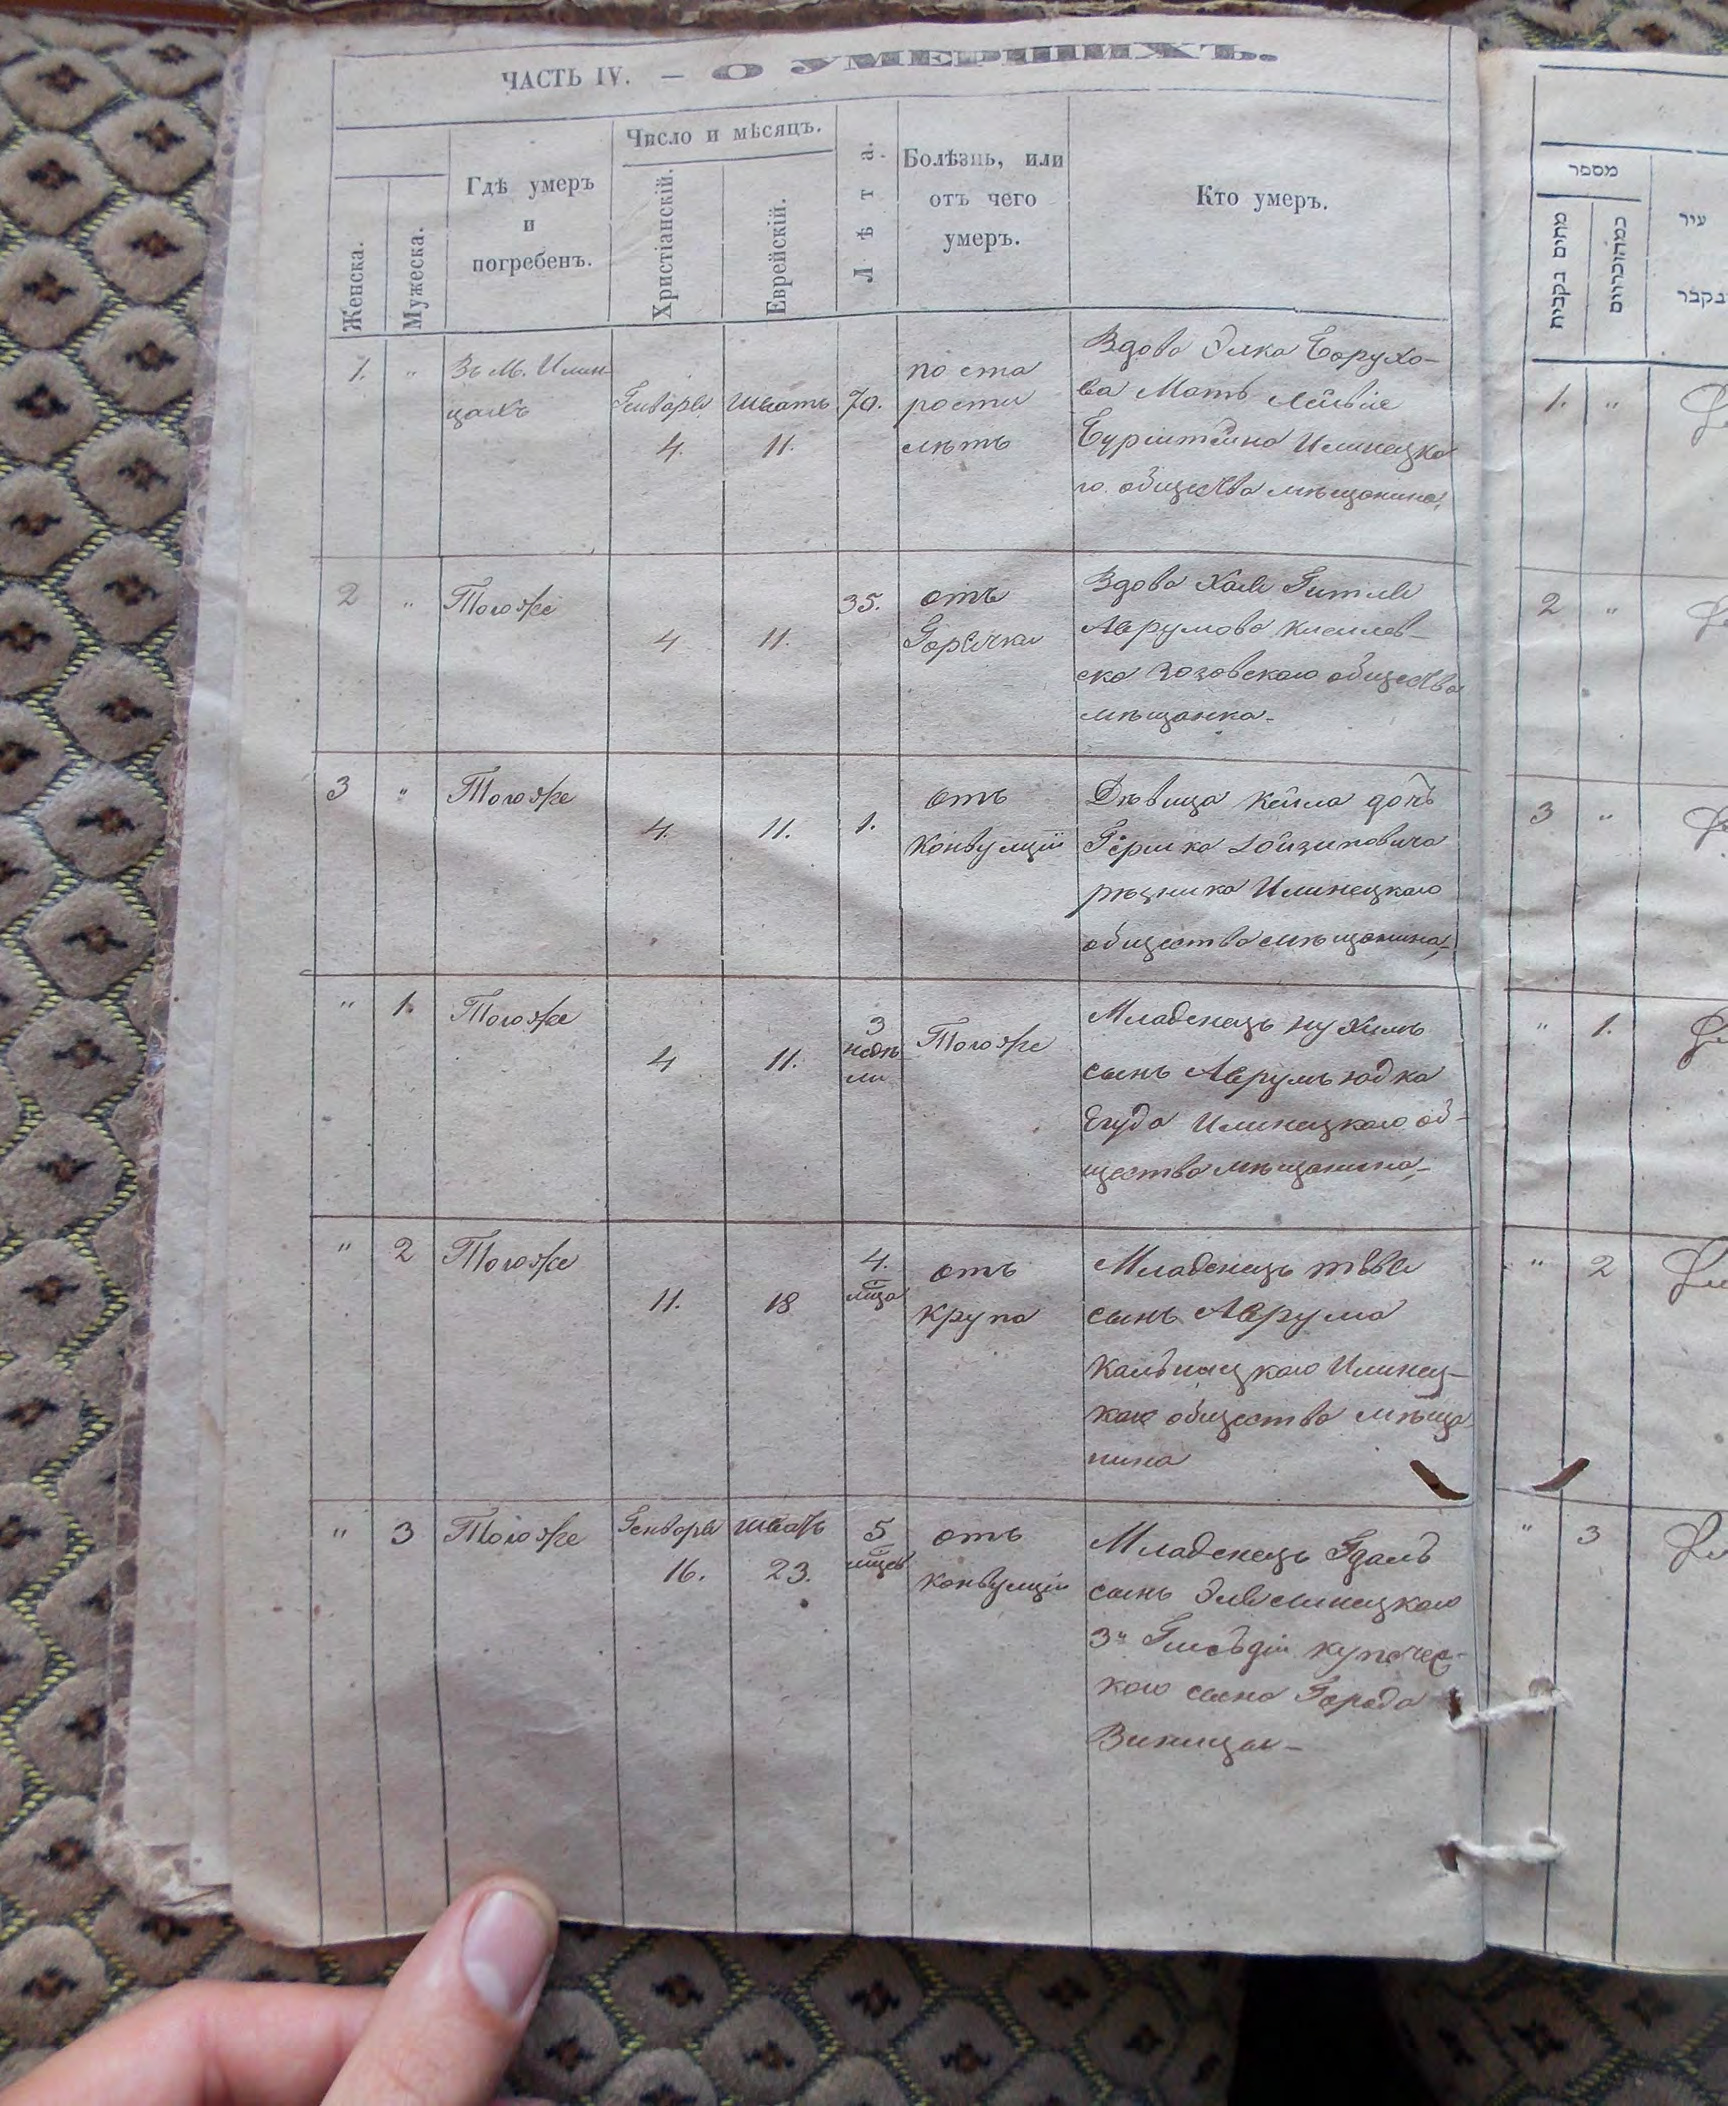 ЧАСТЬ IV. — О УМЕРШИХЪ.
Женска.
Мужеска.
Гдѣ умеръ
и
погребенъ.
Число и мѣсяцъ.
Христіанскій.
Еврейскій.
Лѣта.
Болѣзнь, или
отъ чего
умеръ.
Кто умеръ.
1. " Въ М. Илин-
цахъ
Генваря
4.
Шватъ
11.
70.
по ста
рости
лѣтъ
Вдова Элка Борухо-
ва Мать Лейвіе
Бурштейна Илинецка
го общества мѣщанина,
2 " Тогоже
4
11.
35.
отъ
Горячки
Вдова Хая Гитля
Аврумова
ска Зозовскаго общества
мѣщанка-
3 " Тогоже
4.
11.
1.
отъ
Конвулціи
Дѣвица Кейла дочь
Гершка
рѣзника Илинецкаго
общества мѣщанина,-
" 1. Тогоже
4
11.
3
недѣ
ли
Тогоже
Младенецъ Нухимъ
сынъ Аврумъ Юдка
Егуда Илинецкаго об-
щества мѣщанина,-
" 2 Тогоже
11.
18
4.
мца
отъ
Крупа
Младенецъ Тевье
сынъ Аврума
Кальницкаго Илинец-
каго общества мѣща
нина
" 3 Тогоже
Генваря
16.
Шватъ
23.
5
мцевъ
отъ
конвулціи
Младенецъ Гдаль
сынъ
3й Гильдіи купечес-
каго сына Города
Винницы-
מספר
מתים נקבות
עיר
נקבר
1. "
2 "
3 "
" 1.
" 2
" 3